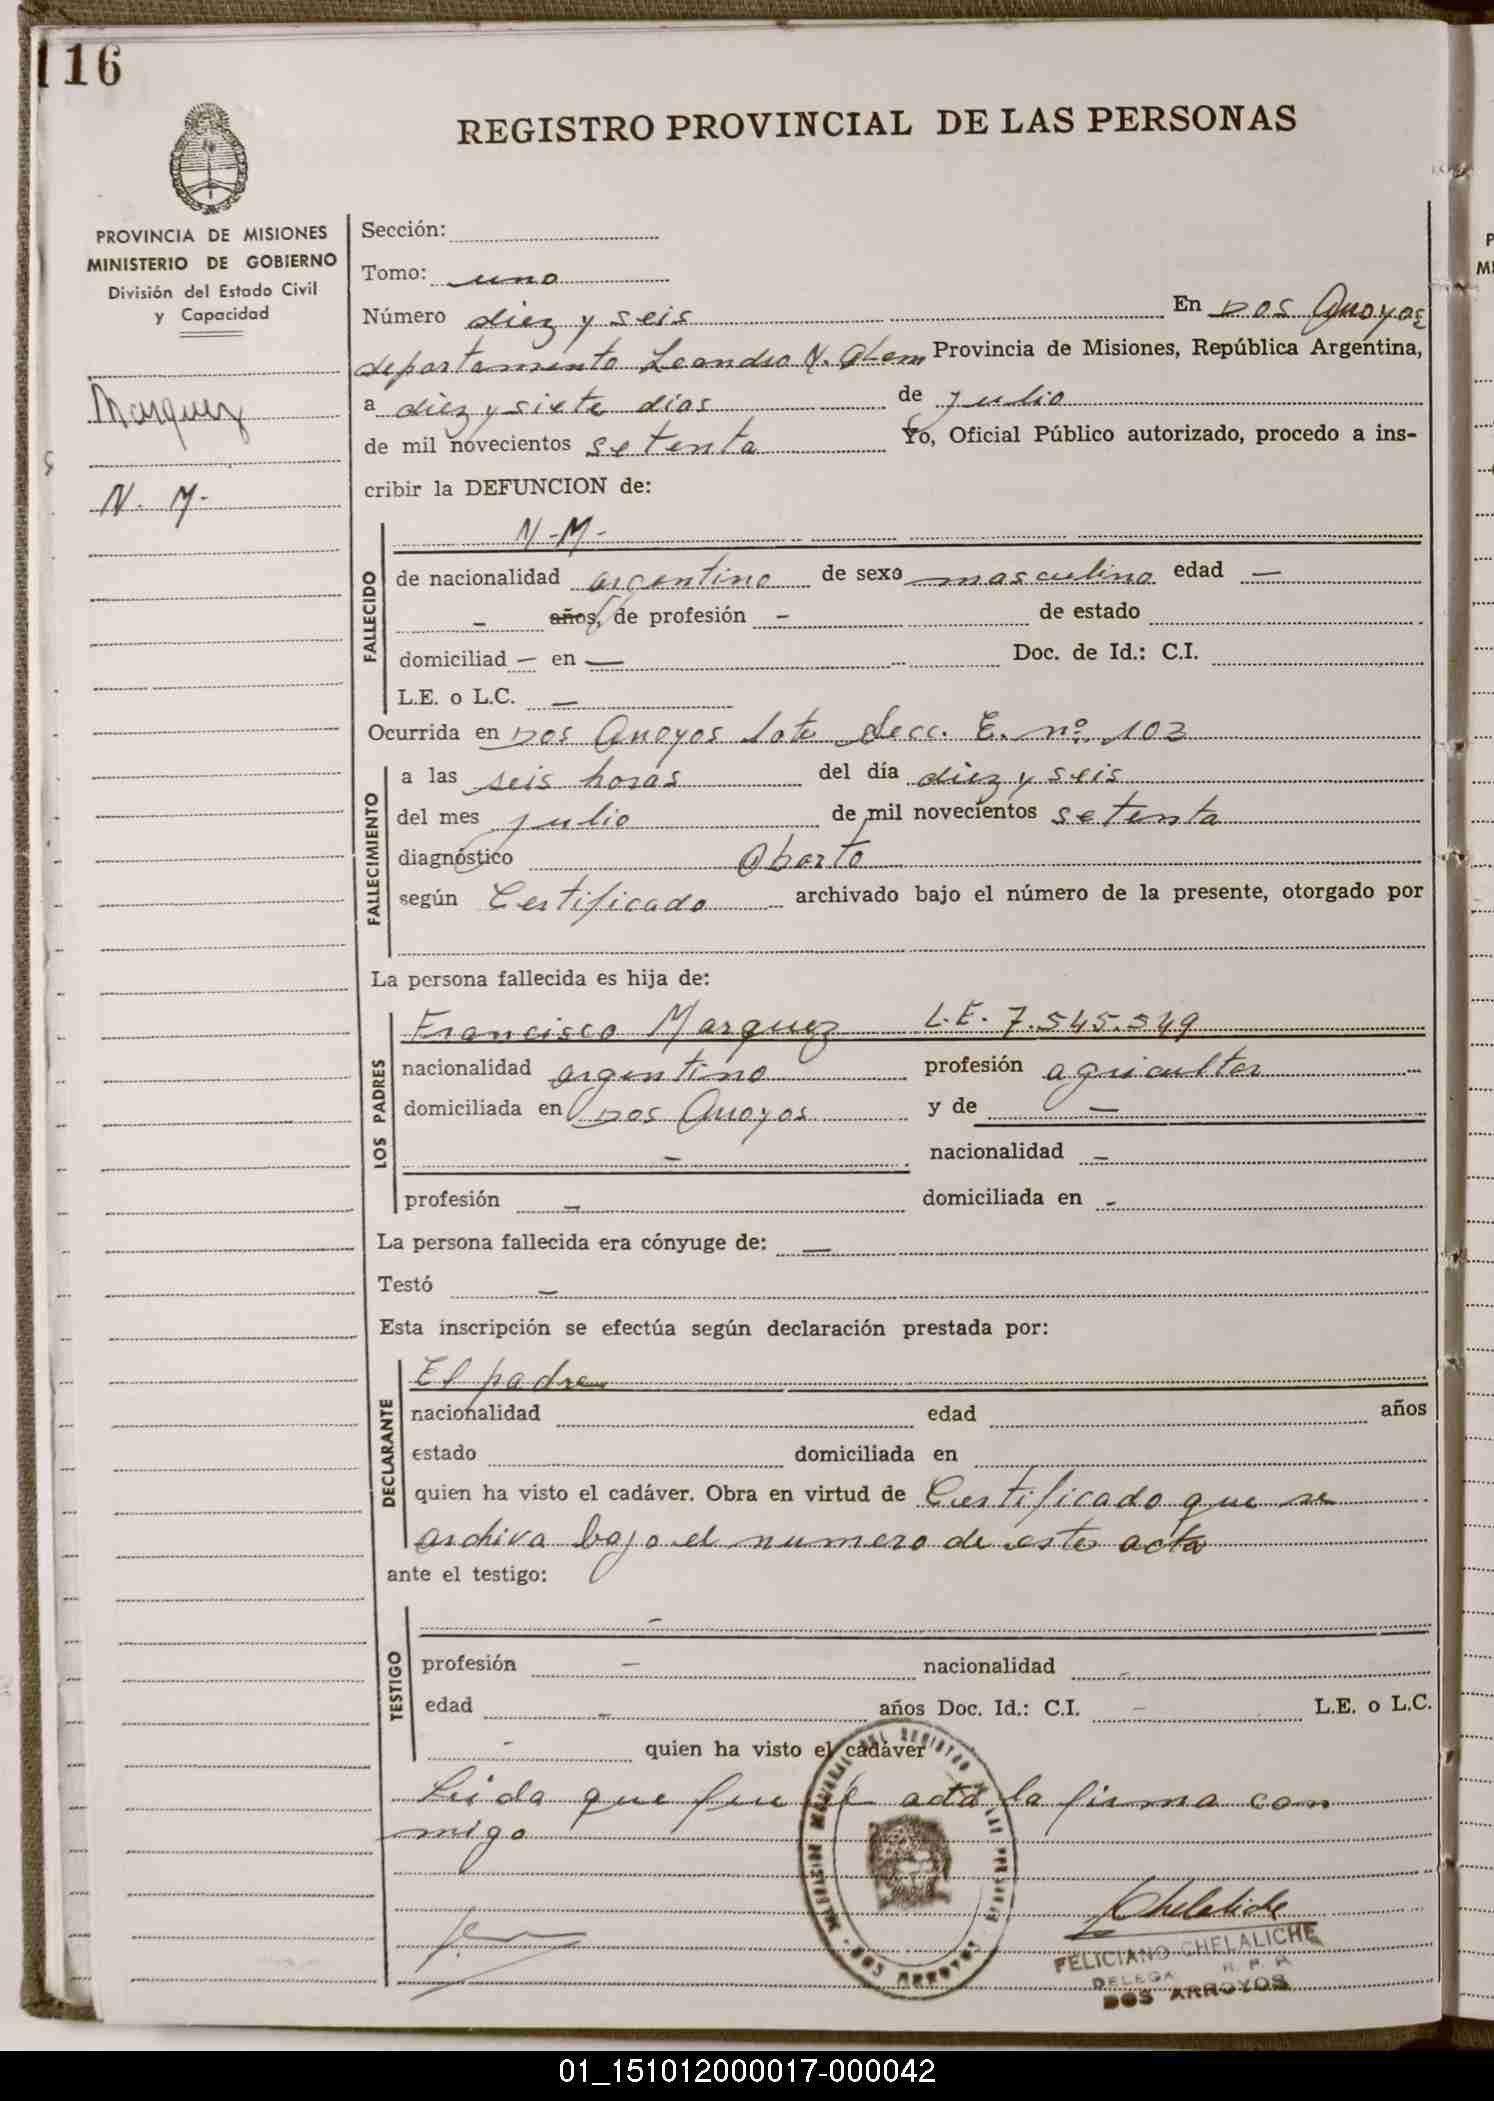 116
REGISTRO PROVINCIAL DE LAS PERSONAS
PROVINCIA DE MISIONES
MINISTERIO DE GOBIERNO
División del Estado Civil
y Capacidad
Marquez
N. M.-
Sección:
Tomo: uno
Número diez y seis En Dos Arroyos
departamento Leandro N. Alem Provincia de Misiones, República Argentina,
a diez y siete dias de julio
de mil novecientos setenta Yo, Oficial Público autorizado, procedo a ins-
cribir la DEFUNCION de:
FALLECIDO
N-M-
de nacionalidad argentino de sexo masculino edad —
- años, de profesión - de estado
domiciliad — en — Doc. de Id.: C.I.
L.E. o L.C. —
Ocurrida en Dos Arroyos lote Secc. E. nº. 103
FALLECIMIENTO
a las seis horas del día diez y seis
del mes julio de mil novecientos setenta
diagnóstico Aborto
según Certificado archivado bajo el número de la presente, otorgado por
La persona fallecida es hija de:
LOS PADRES
Francisco Marquez L.E. 7.545.549
nacionalidad argentino profesión agricultor
domiciliada en Dos Arroyos y de —
- nacionalidad -
profesión - domiciliada en -
La persona fallecida era cónyuge de: —
Testó -
Esta inscripción se efectúa según declaración prestada por:
DECLARANTE
El padre
nacionalidad edad años
estado domiciliada en
quien ha visto el cadáver. Obra en virtud de Certificado que se
archiva bajo el numero de este acta
ante el testigo:
TESTIGO
-
profesión - nacionalidad -
edad - años Doc. Id.: C.I. - L.E. o L.C.
- quien ha visto el cadáver
Leida que fue el acta la firma con
migo
DOS ARROYOS
Chelaliche
FELICIANO CHELALICHE
DELEGA R. P. P.
DOS ARROYOS
01_151012000017-000042